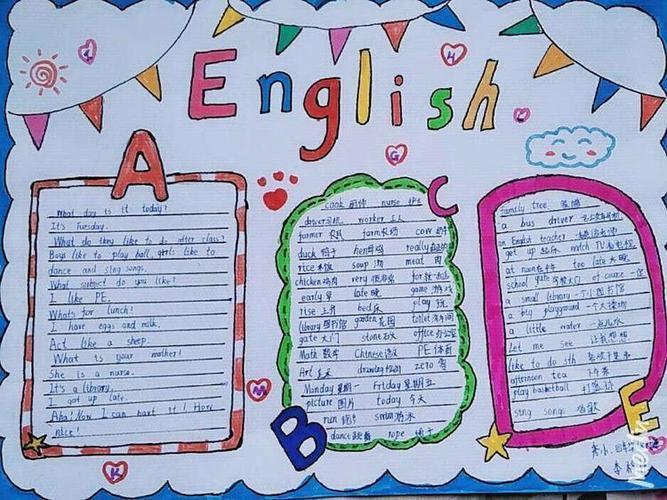 English
A
What day is it today?
It's Tuesday.
What do they like to do after class?
Boys like to play ball, girls like to
dance and sing songs.
What subject do you like?
I like PE.
Whats for lunch?
I have eggs and milk.
Act like a sheep.
What is your mother?
She is a nurse.
It's a library.
I get up late.
Aha! Now I can hart it! How
nice!
B
C
cook 厨师 nurse 护士
driver司机 worker 工人
farmer 农民 farm农场 cow 奶牛
duck 鸭子 hen母鸡 really
rice米饭 soup 汤 meat 肉
chicken鸡肉 very很非常 for
early早 late 晚 game 游戏
rise 上升 bed床 play 玩
library图书馆 garden花园 toilet
gate 大门 office办公室
Math 数学 Chinese语文 PE体育
Art drawing zero 零
Munday星期一 Friday星期五
picture 图片 today 今天
run 跑步 swim游泳
dance跳舞 rope 绳子
family tree
a bus driver
an English teacher
get up 起床 watch TV看电视
at noon在中午 too late太晚
school gate 学校大门 of course
a small library 一个小图书馆
a big playground 一个大操场
a little water 一点儿水
Let me see 让我想想
like to do sth
afternoon tea 下午茶
play basketball 打篮球
sing songs 唱歌
E